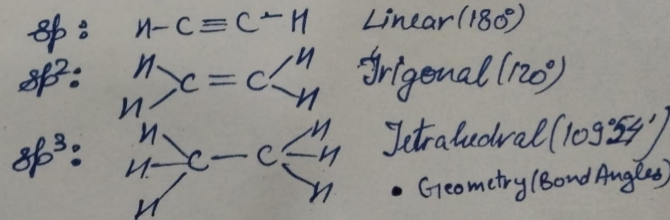 sp: H-C≡C-H Linear (180°)
sp²: H H C=C H H Trigonal (120°)
sp³: H H H C-C H H H Tetrahedral (109°54')
• Geometry (Bond Angles)